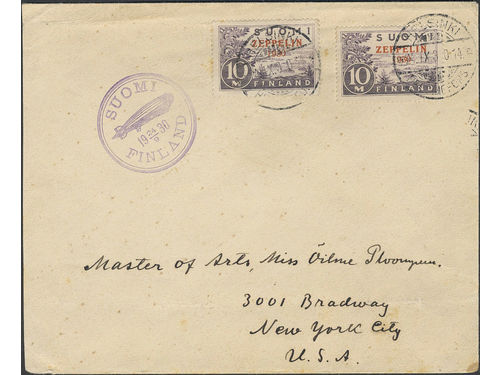 SUOMI
ZEPPELIN
1930
10 M
FINLAND
SUOMI
ZEPPELIN
1930
10 M
FINLAND
SUOMI
19 24/9 30
FINLAND
Master of Arts, Miss
3001 Bradway
New York City
U.S.A.